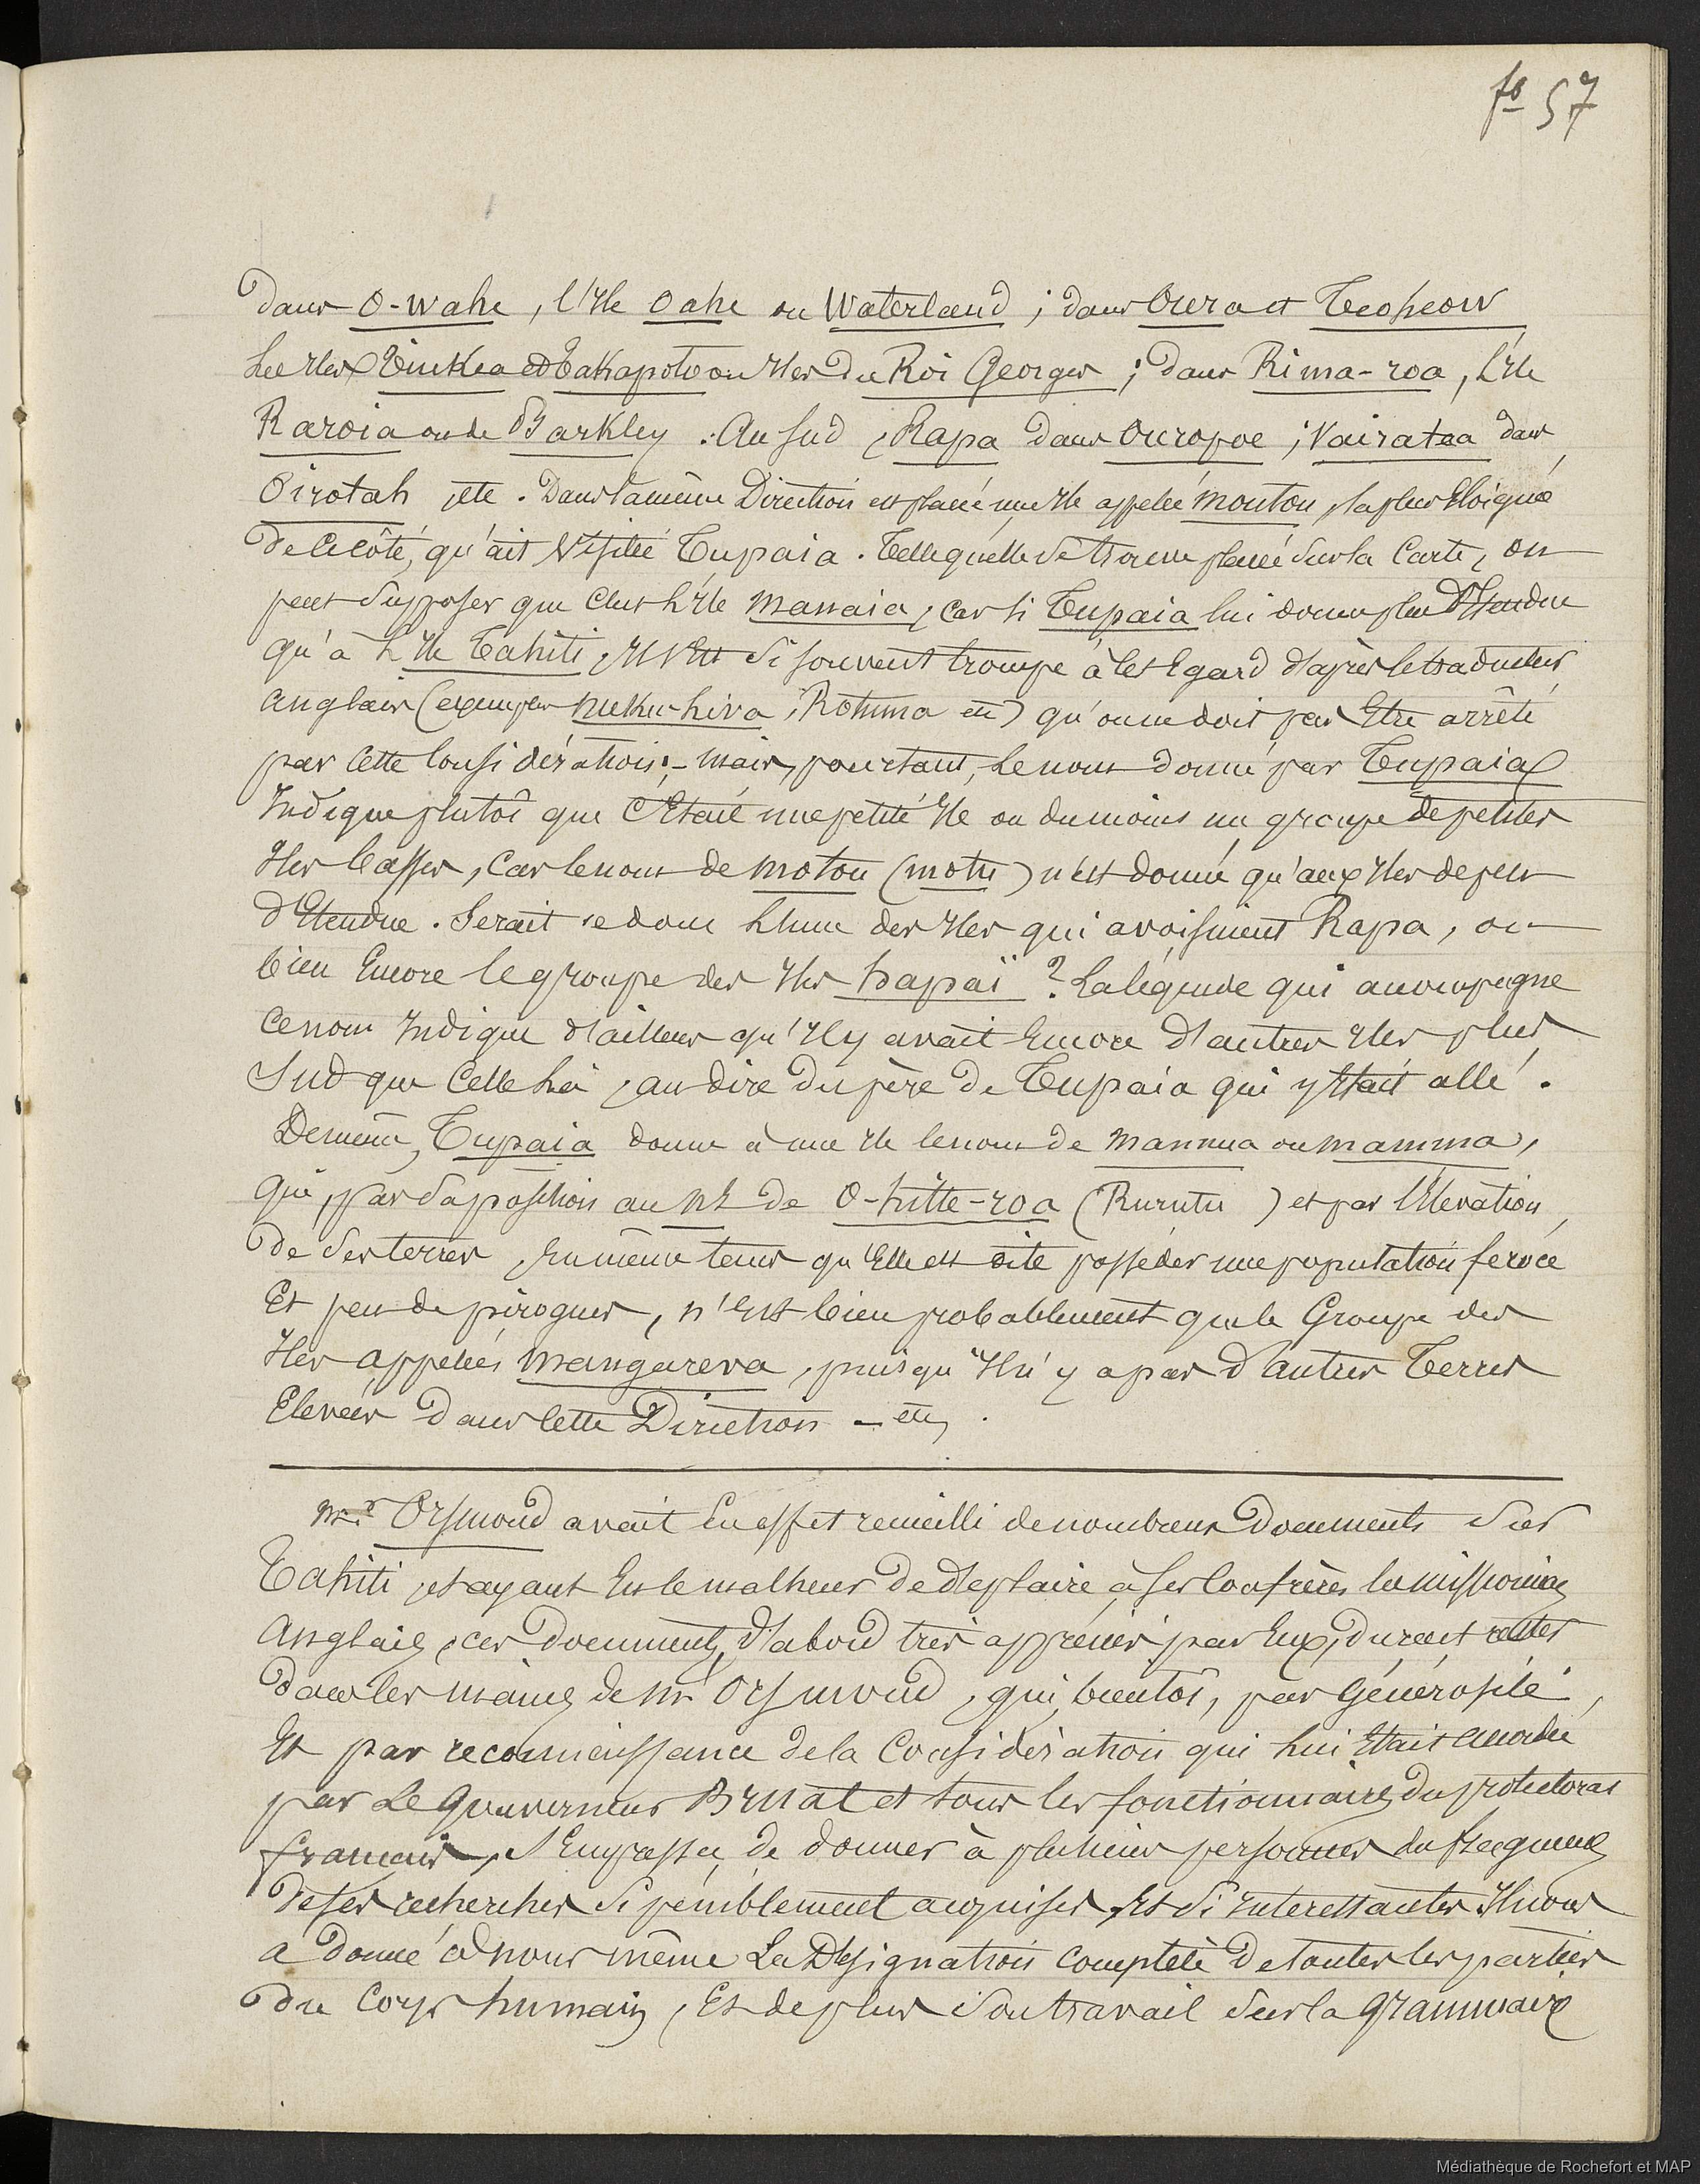 fo 57
dans O-wahe, l'Ile Oahe ou Waterland ; dans Oura et Teoheow
Les Iles Tiukea et Takapoto ou Iles du Roi Georges ; dans Rima-roa, l'Ile
Raroia ou de Barkley. Au Sud, Rapa dans Ouropoe ; Vairataa dans
Oirotah, etc. Dans la même Direction est placé une Ile appelée Moutou, la plus Eloignée
de ce côté, qu'ait visitée Tupaia. Telle qu'elle se trouve placée sur la Carte, on
peut supposer que c'est l'Ile Mannaia, car si Tupaia lui donne plus d'Etendue
qu'à l'Ile Tahiti, il s'est si souvent trompé à cet Egard d'après le traducteur
anglais (exemples Nuku-hiva, Rotuma etc) qu'on ne doit pas Etre arrêté
par cette Considération ; - mais, pourtant, le nom donné par Tupaia
Indique plutôt que c'Etait une petite Ile ou du moins un groupe de petites
Iles basses, car le nom de moton (motu) n'est donné qu'aux Iles de peu
d'Etendue. Serait ce donc l'une des Iles qui avoisinent Rapa, ou
bien Encore le groupe des Iles hapaï ? La légende qui accompagne
ce nom Indique d'ailleurs qu'Il y avait Encore d'autres Iles plus
Sud que Celle là, au dire du père de Tupaia qui y Etait allé.
De même, Tupaia donne à une Ile le nom de Mannua ou mamma,
qui, par sa position au NE de O-hitte-roa (Rurutu) et par l'Elevation
de ses terres, En même tems qu'Elle est dite posséder une population feroce
Et peu de pirogues, n'Est bien probablement que le Groupe des
Iles appelées Mangareva, puisqu'Il n'y a pas d'autres Terres
Elevées dans Cette Direction - etc.
Mr Orsmond avait En effet recueilli de nombreux Documents sur
Tahiti, et ayant Eu le malheur de déplaire à ses Confrères les missionnaires
Anglais, ces Documents, d'abord très appréciés par Eux, durent rester
dans les mains de Mr Orsmond, qui, bientôt, par Générosité,
Et par reconnaissance de la Considération qui lui Etait accordée
par Le Gouverneur Bruat et tous les fonctionnaires du protectorat
français, s'Empressa de donner à plusieurs personnes des fragments
de ses recherches si péniblement acquises, Et si Interessantes. Il nous
a donné à nous même La Désignation complète de toutes les parties
du Corps humain, Et de plus son travail sur la grammaire
Médiathèque de Rochefort et MAP